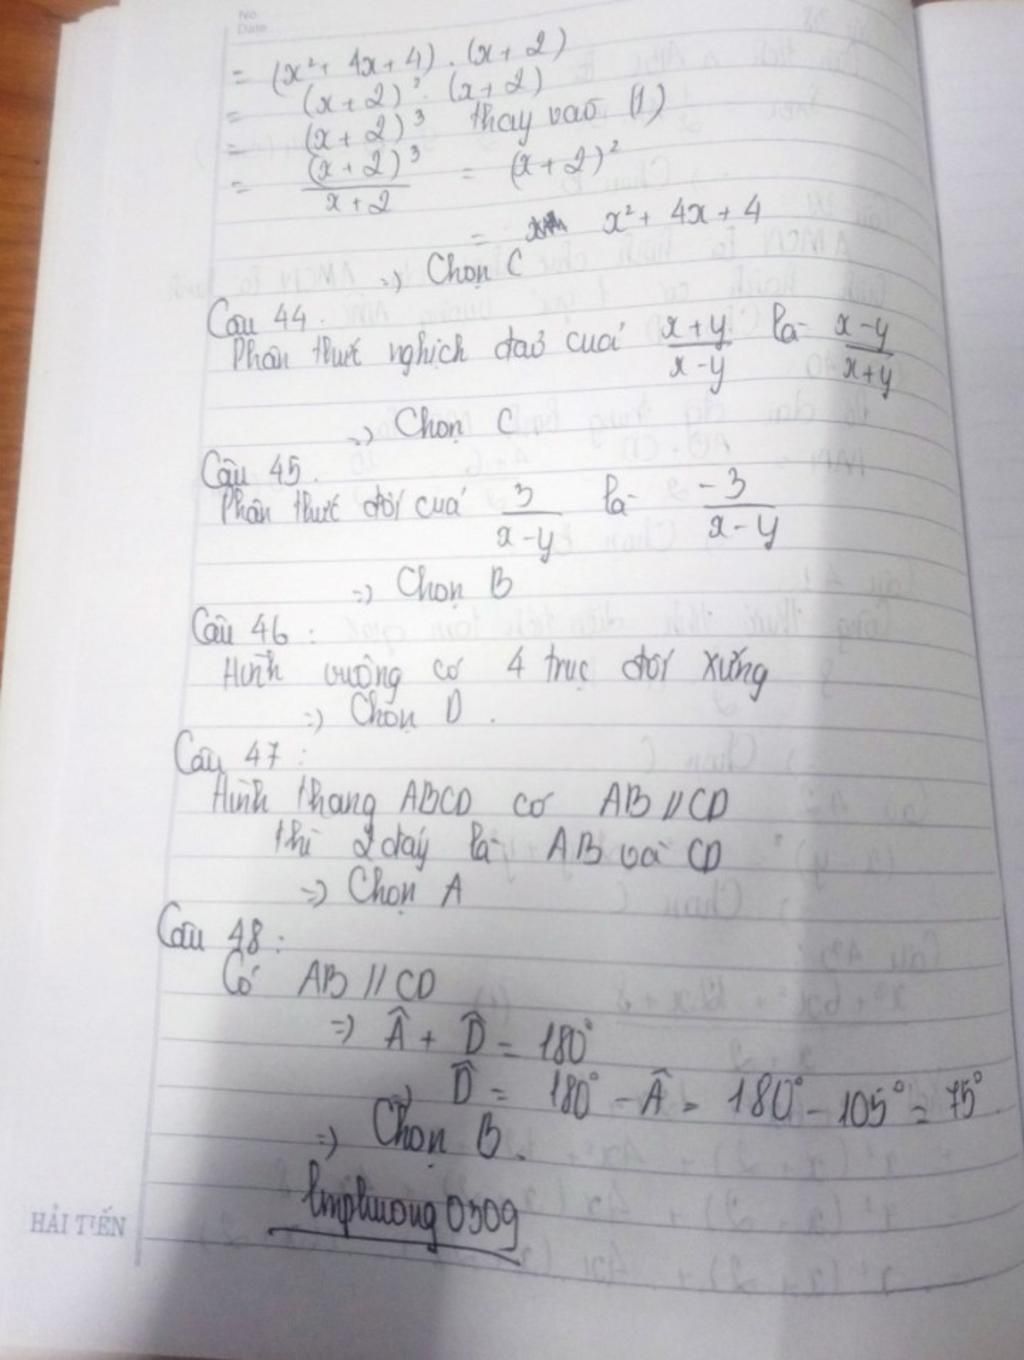 No.
Date
= (x² + 4x + 4) . (x + 2)
= (x + 2)² . (x + 2)
= (x + 2)³ thay vào (1)
= (x + 2)³ / x + 2 = (x + 2)²
= x² + 4x + 4
=> Chọn C
Câu 44.
Phân thức nghịch đảo của x + y / x - y là x - y / x + y
=> Chọn C
Câu 45.
Phân thức đối của 3 / x - y là -3 / x - y
=> Chọn B
Câu 46:
Hình vuông có 4 trục đối xứng
=> Chọn D.
Câu 47:
Hình thang ABCD có AB // CD
thì 2 đáy là AB và CD
=> Chọn A
Câu 48:
Có AB // CD
=> Â + D̂ = 180°
=> D̂ = 180° - Â = 180° - 105° = 75°
=> Chọn B.
lmphuong0309
HẢI TIẾN